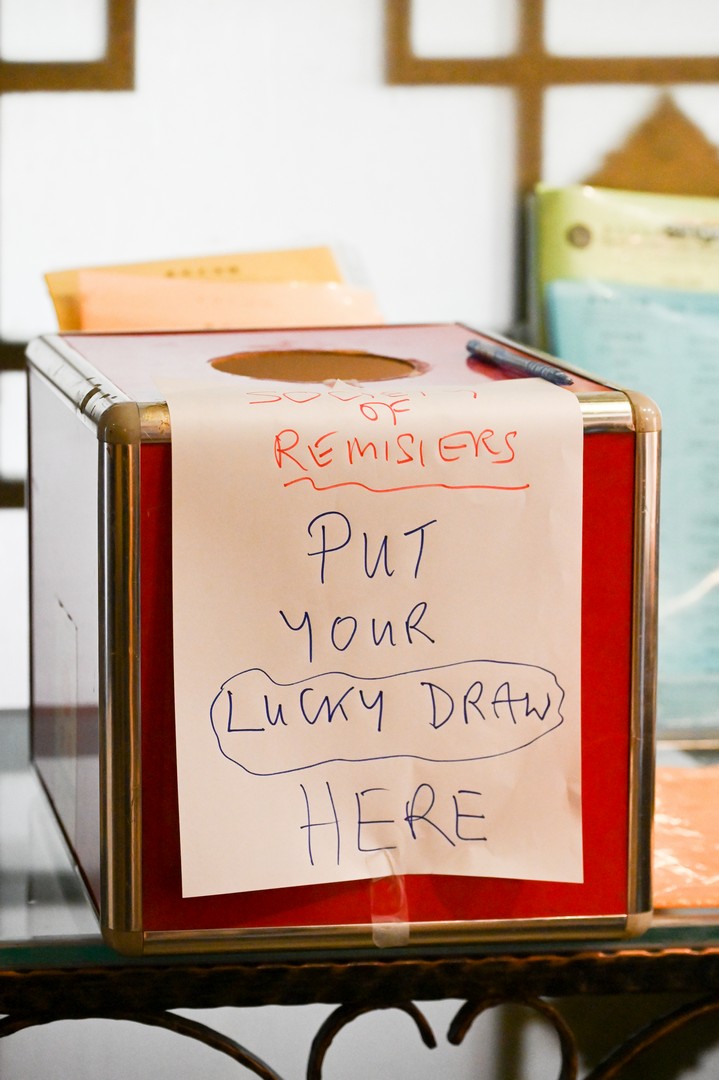 SOCIETY
OF
REMISIERS
PUT
YOUR
LUCKY DRAW
HERE